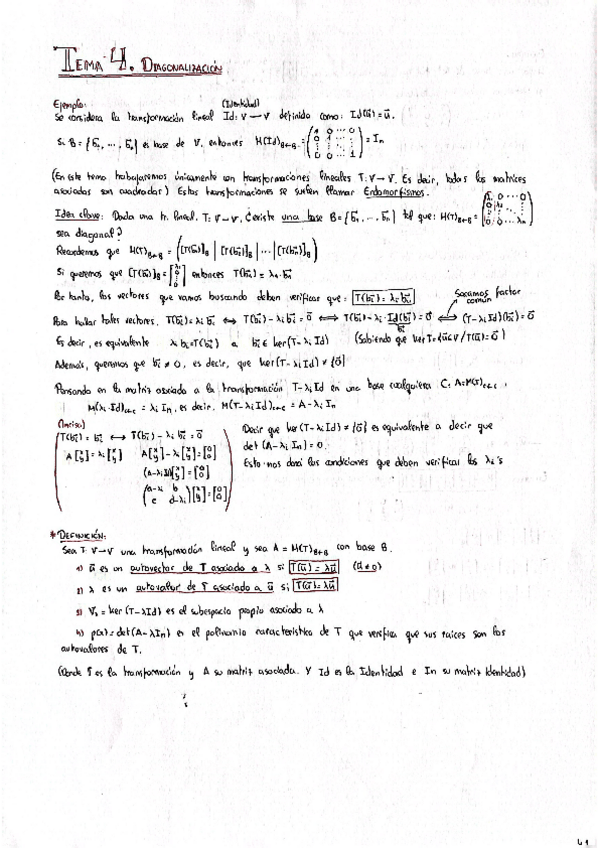 TEMA 4. DIAGONALIZACIÓN
Ejemplo: (Identidad)
Se considera la transformación lineal Id: V → V definido como: Id(ū) = ū.
Si B = {b̄₁, ..., b̄ₙ} es base de V, entonces M(Id)B←B = (1 0 ... 0 / 0 1 ... 0 / 0 0 ... 1) = In
(En este tema trabajaremos únicamente con transformaciones lineales T: V → V. Es decir, todas las matrices
asociadas son cuadradas) Estas transformaciones se suelen llamar Endomorfismos.
Idea clave: Dada una tr. lineal, T: V → V, ¿existe una base B = {b̄₁, ..., b̄ₙ} tal que: M(T)B←B =
sea diagonal?
Recordemos que M(T)B←B = ([T(b̄₁)]B | [T(b̄₂)]B | ... | [T(b̄ₙ)]B)
Si queremos que [T(b̄ᵢ)]B = entonces T(b̄ᵢ) = λᵢ·b̄ᵢ
Por tanto, los vectores que vamos buscando deben verificar que: T(b̄ᵢ) = λᵢb̄ᵢ
Sacamos factor común
Para hallar tales vectores, T(b̄ᵢ) = λᵢb̄ᵢ ⟺ T(b̄ᵢ) - λᵢb̄ᵢ = 0̄ ⟺ T(b̄ᵢ) - λᵢ·Id(b̄ᵢ) = 0̄ ⟺ (T - λᵢId)(b̄ᵢ) = 0̄
b̄ᵢ
Es decir, es equivalente λᵢbᵢ = T(b̄ᵢ) a b̄ᵢ ∈ ker(T - λᵢId) (Sabiendo que ker T = {ū ∈ V / T(ū) = 0̄})
Además, queremos que b̄ᵢ ≠ 0, es decir, que ker(T - λᵢId) ≠ {0̄}
Pensando en la matriz asociada a la transformación T - λᵢId en una base cualquiera C: A = M(T)C←C,
M(λᵢ·Id)C←C = λᵢIn, es decir, M(T - λᵢId) = A - λᵢIn
(Inciso)
T(b̄ᵢ) = b̄ᵢ ⟷ T(b̄ᵢ) - λᵢb̄ᵢ = 0̄
A[x y] = λᵢ[x y] A[x y] - λᵢ[x y] = [0 0]
(A - λᵢId)[x y] = [0 0]
(a-λᵢ b / c d-λᵢ)[x y] = [0 0]
Decir que ker(T - λᵢId) ≠ {0̄} es equivalente a decir que
det(A - λᵢIn) = 0.
Esto nos dará las condiciones que deben verificar los λᵢ's
* DEFINICIÓN:
Sea T: V → V una transformación lineal y sea A = M(T)B←B con base B.
1) ū es un autovector de T asociado a λ si T(ū) = λū (ū ≠ 0)
2) λ es un autovalor de T asociado a ū si T(ū) = λū
3) Vλ = ker(T - λId) es el subespacio propio asociado a λ
4) p(λ) = det(A - λIn) es el polinomio característico de T que verifica que sus raíces son los
autovalores de T.
(Donde T es la transformación y A su matriz asociada. Y Id es la Identidad e In su matriz Identidad)